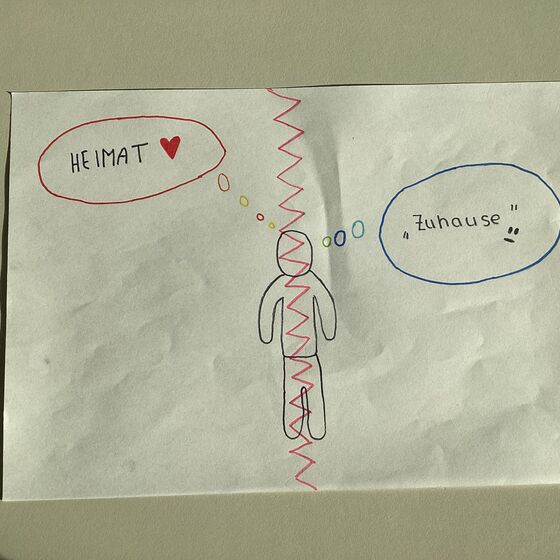 HEIMAT ♥
„Zuhause"